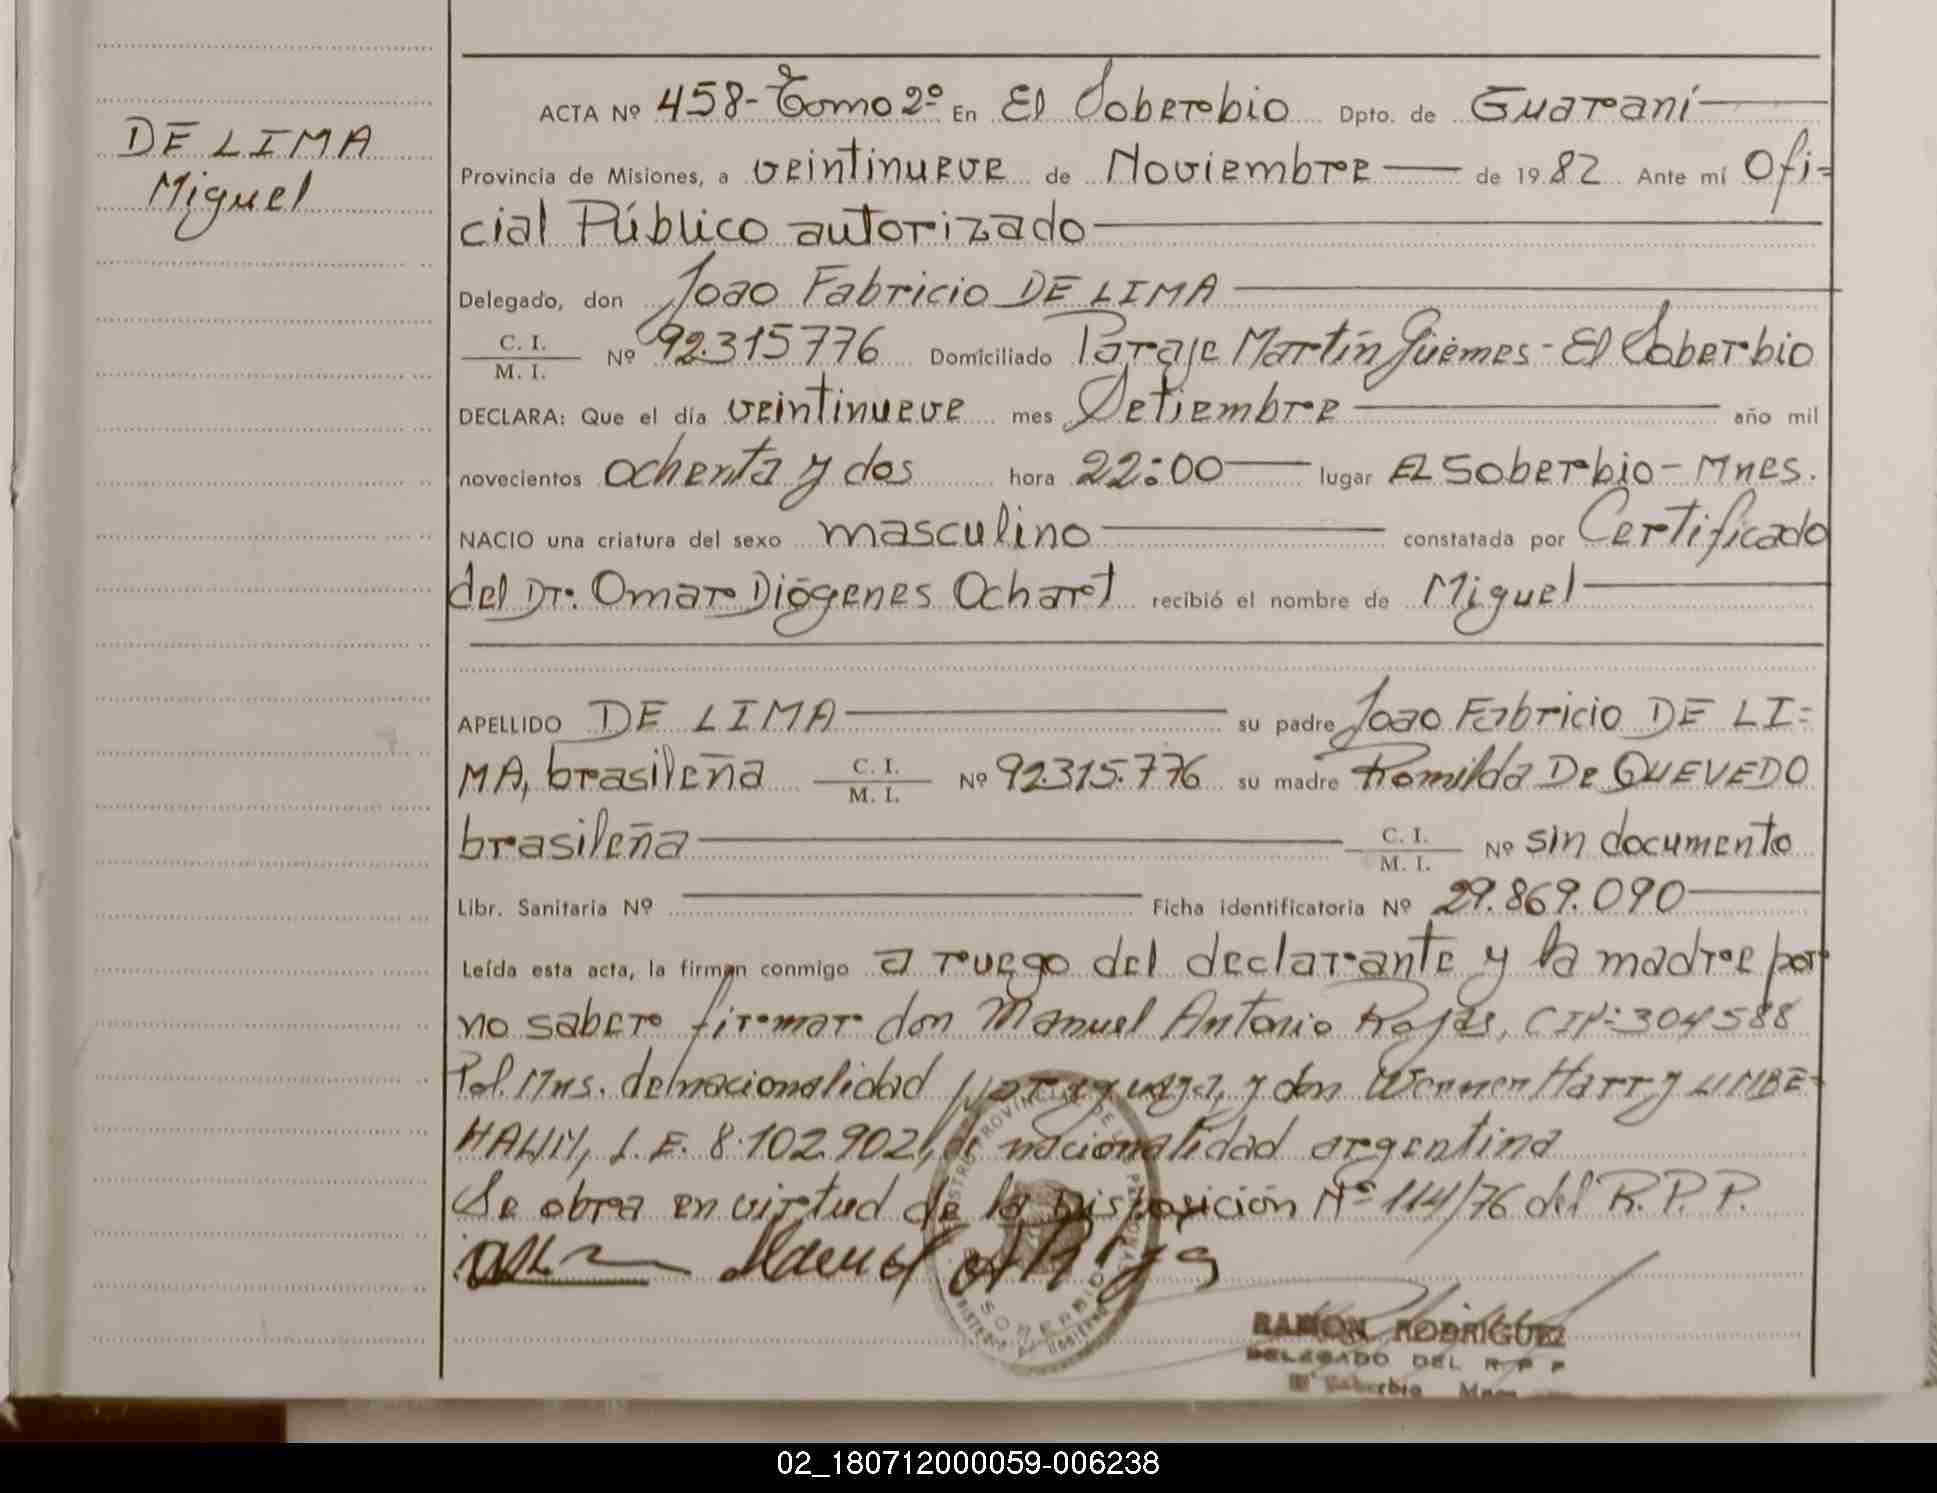 DE LIMA
Miguel
ACTA Nº 458- Tomo 2º En El Soberbio Dpto. de Guaraní
Provincia de Misiones, a veintinueve de Noviembre de 1982 Ante mí Ofi=
cial Público autorizado
Delegado, don Joao Fabricio DE LIMA
C. I.
M. I. Nº 92.315776 Domiciliado Paraje Martín Güemes - El Soberbio
DECLARA: Que el día veintinueve mes Setiembre año mil
novecientos ochenta y dos hora 22:00 lugar EL Soberbio - Mnes.
NACIO una criatura del sexo masculino constatada por Certificado
del Dr. Omar Diógenes Ocharet recibió el nombre de Miguel
APELLIDO DE LIMA su padre Joao Fabricio DE LI=
MA, brasileña C. I. M. I. Nº 92.315.776 su madre Romilda De QUEVEDO
brasileña C. I. M. I. Nº sin documento
Libr. Sanitaria Nº Ficha identificatoria Nº 29.869.090
Leída esta acta, la firman conmigo a ruego del declarante y la madre por
no saber firmar don Manuel Antonio Rojas, CIN: 304588
Pol. Mns. de nacionalidad paraguaya, y don Werner Harry UMBE-
HAUM, L. E. 8.102.902, de nacionalidad argentina
Se obra en virtud de la Disposición Nº 114/76 del R. P. P.
RAMON RODRIGUEZ
DELEGADO DEL R P P
El Soberbio Mnes
02_180712000059-006238